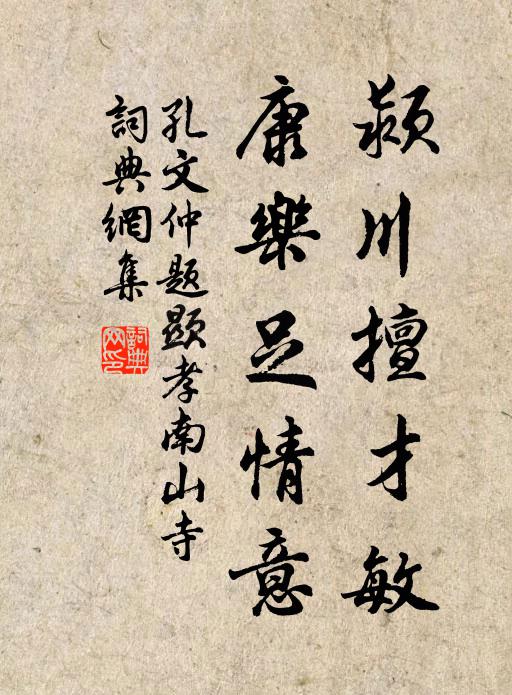 颍川擅才敏
康樂足情意
孔文仲题题顕孝南山寺
詞典網集
詞典網印